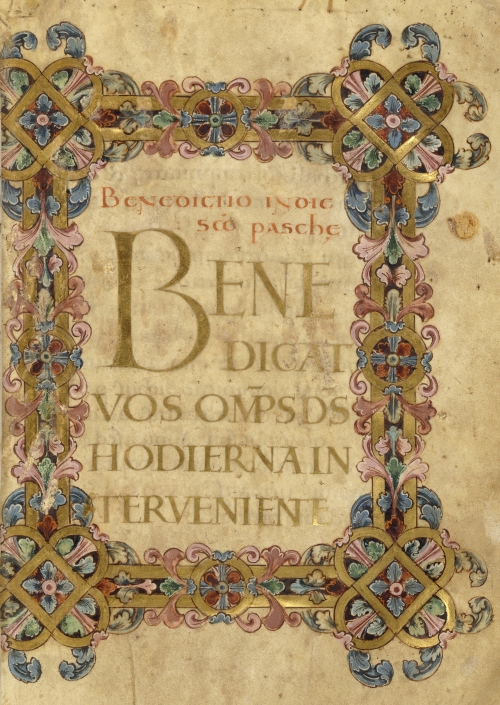 BENEDICTIO IN DIE
SCŌ PASCHE
BENE
DICAT
VOS OM̅PS DS
HODIERNA IN
TERVENIENTE